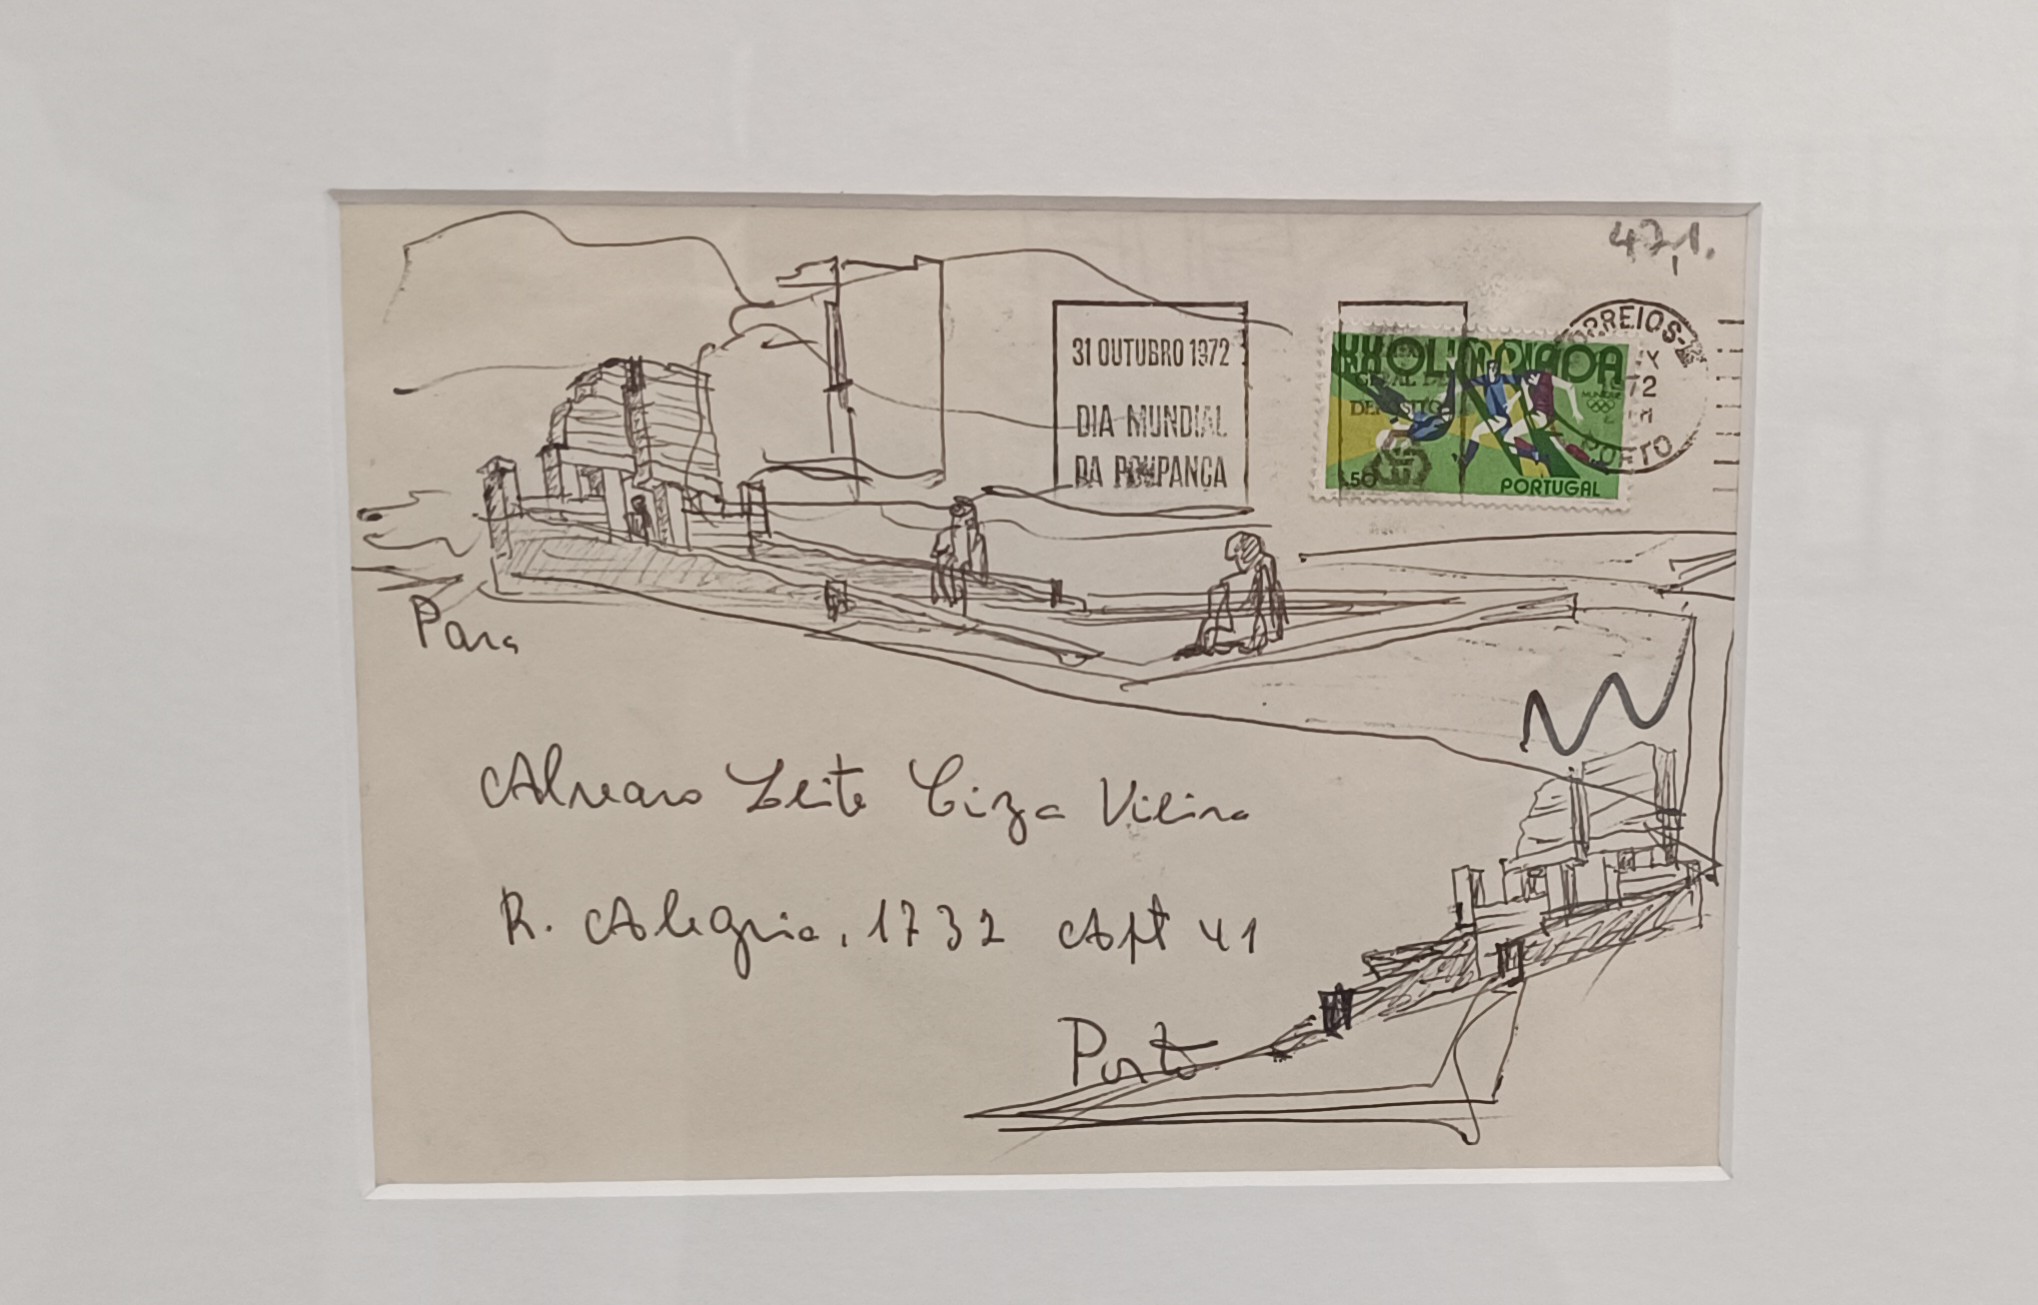 47,1.
31 OUTUBRO 1972
DIA MUNDIAL
DA POUPANÇA
XX OLIMPIADA
GERAL DE
DEPOSITOS
.50
PORTUGAL
CORREIOS-2
1972
PORTO
Para
Alvaro Leite Ciza Vieira
R. Alegria, 1732 Apt 41
Porto